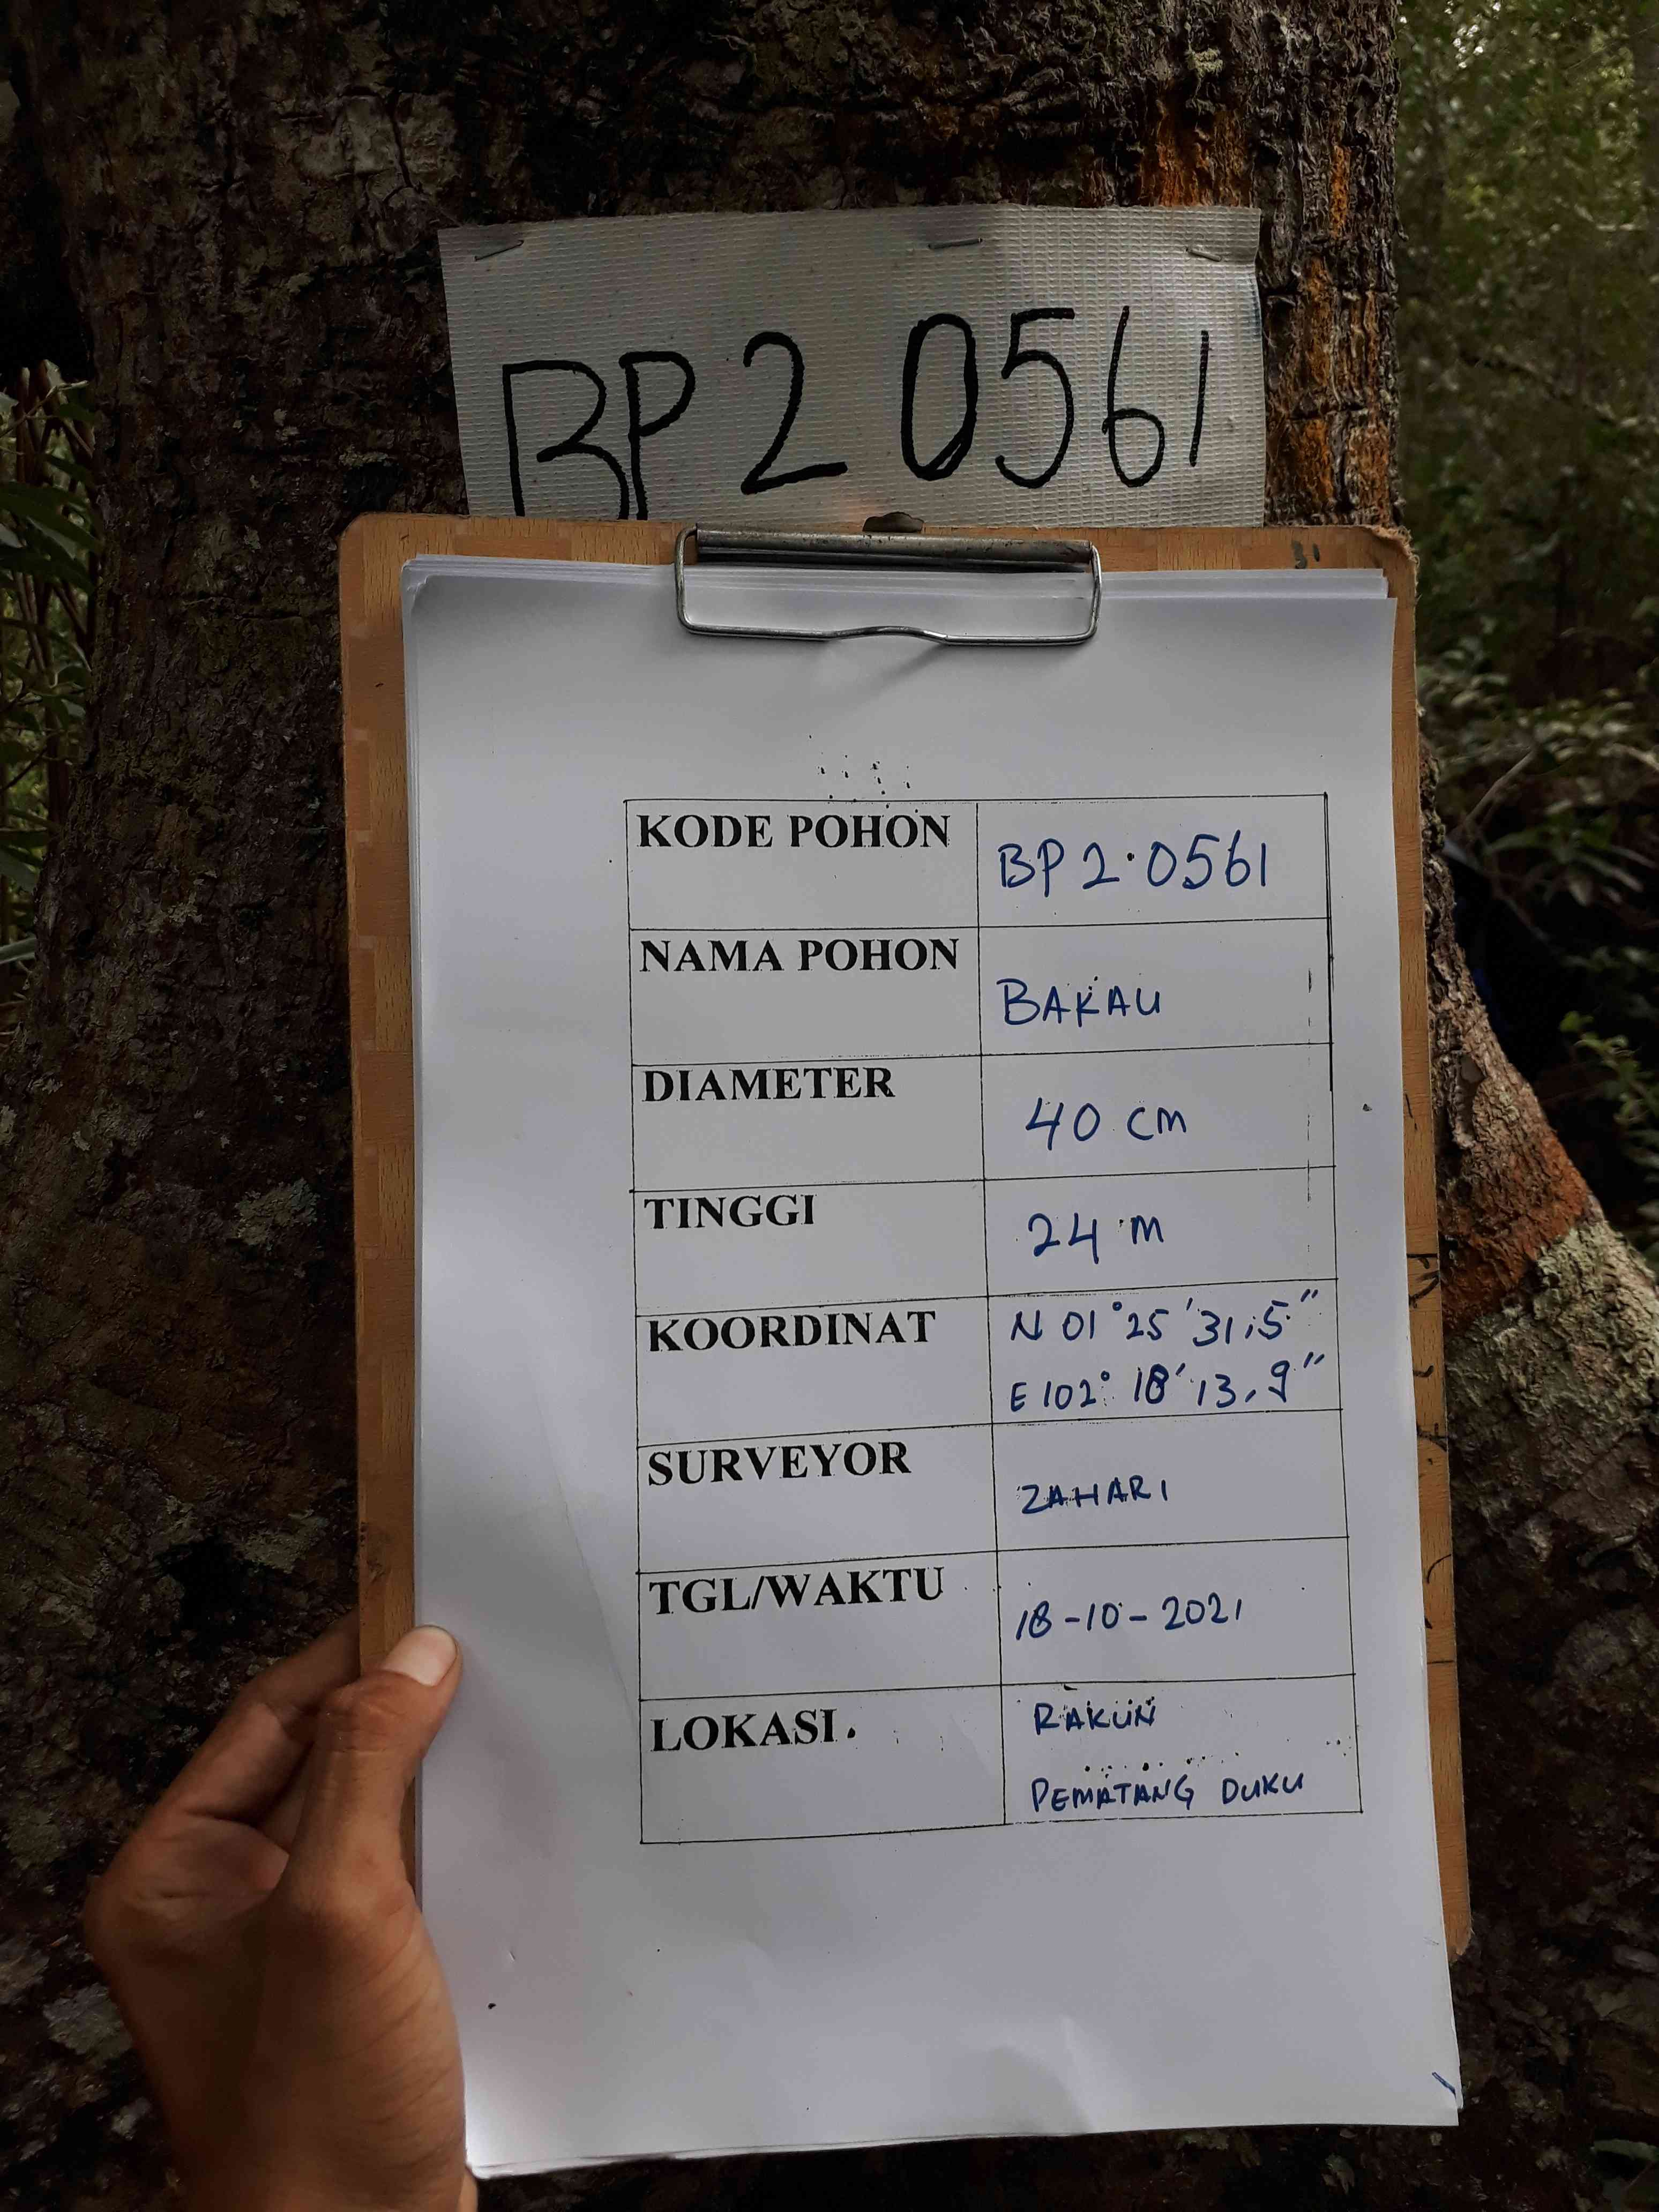 BP2 0561
KODE POHON BP 2.0561
NAMA POHON BAKAU
DIAMETER 40 cm
TINGGI 24 m
KOORDINAT N 01°25'31,5"
E 102° 18' 13,9"
SURVEYOR ZAHARI
TGL/WAKTU 18-10-2021
LOKASI. RAKUN
PEMATANG DUKU